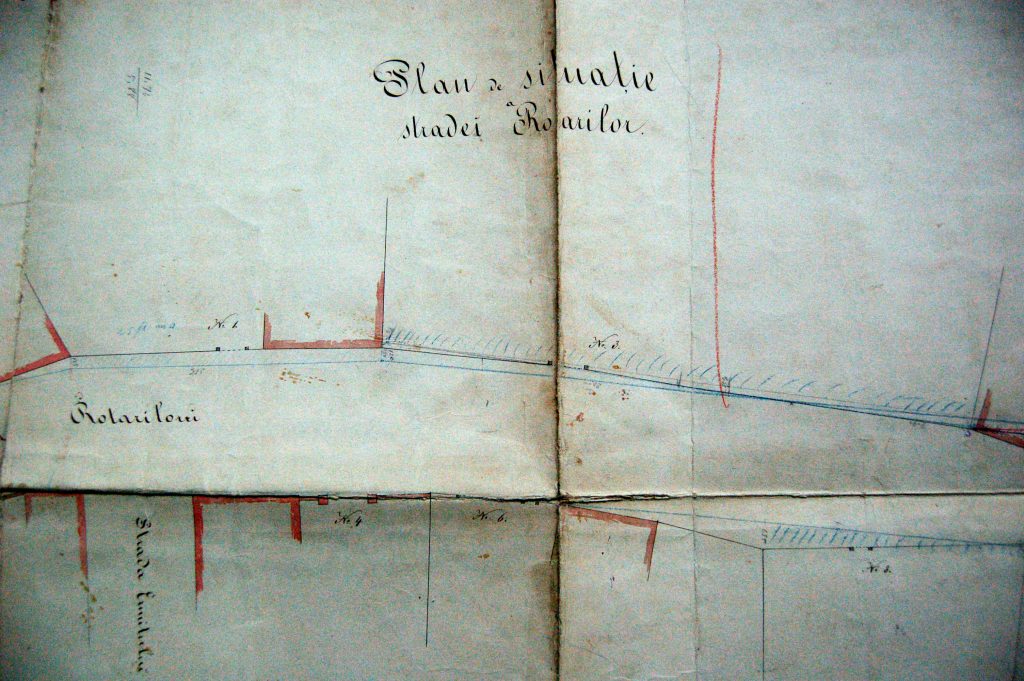 Plan de situație
a
stradei Rotarilor.
No. 1.
No. 3.
Rotarilorŭ
No. 4
No. 6.
No. 8.
Strada